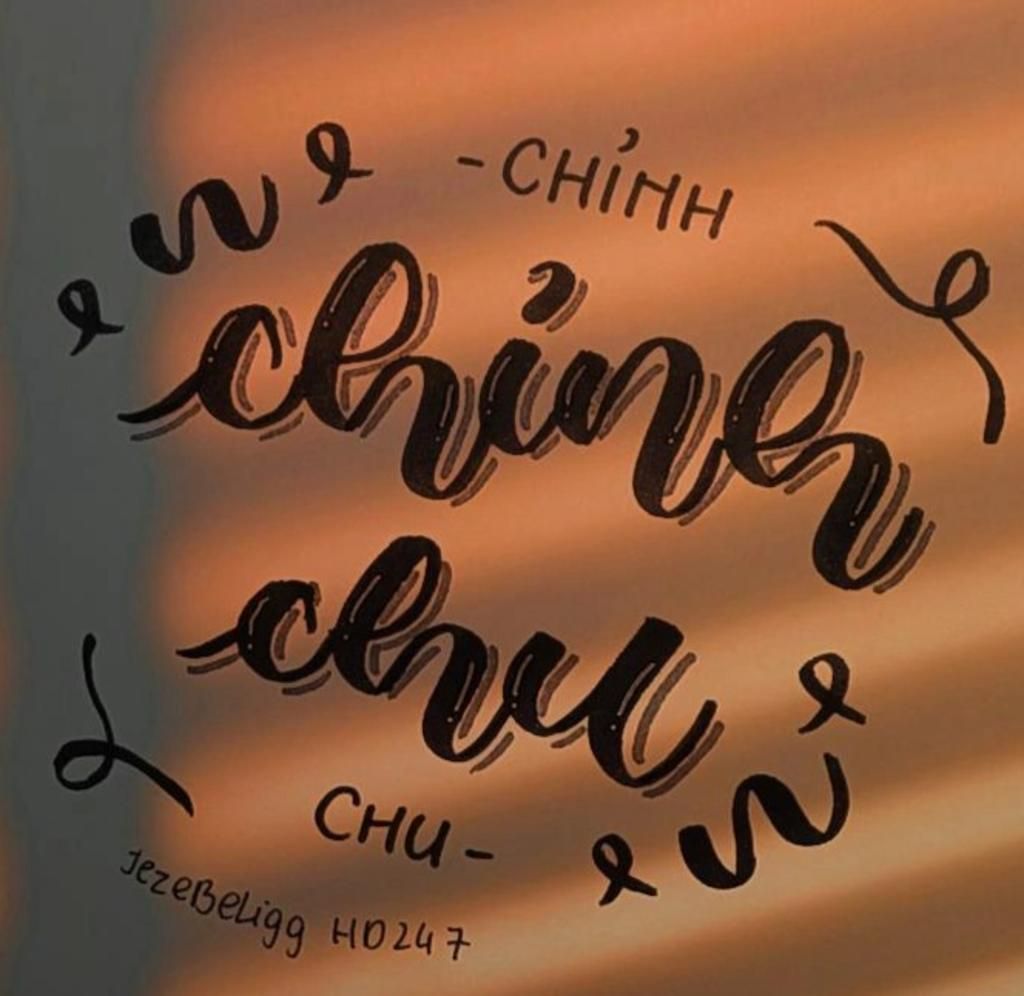 -CHỈNH
chỉnh
chu
CHU-
JezeBeligg HD247